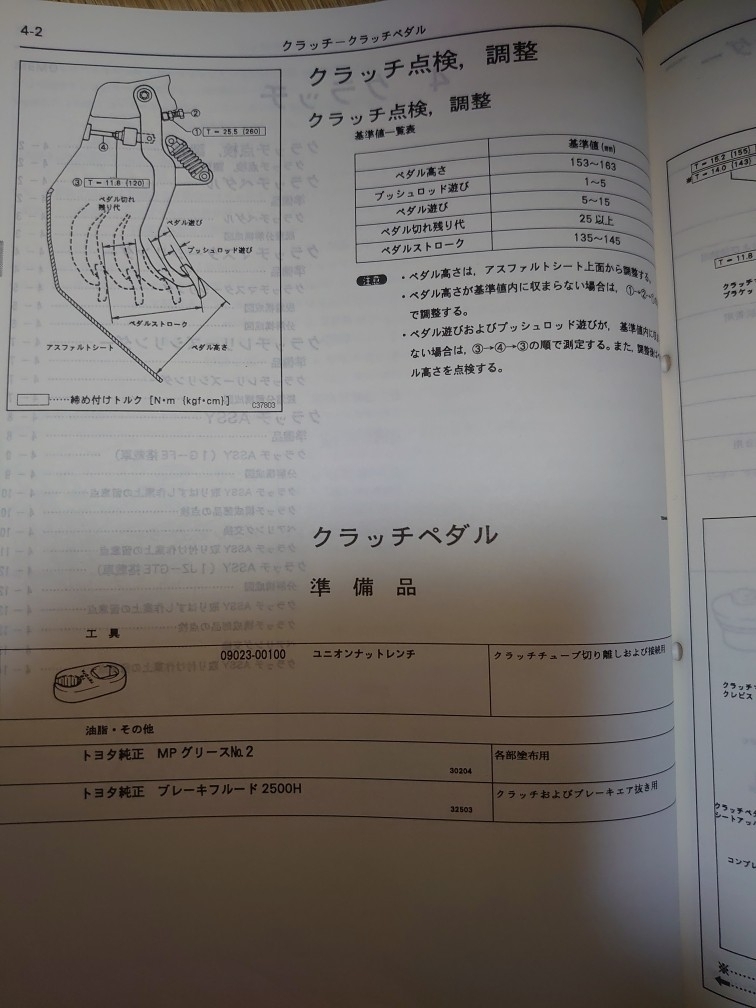 4-2
クラッチークラッチペダル
クラッチ点検，調整
クラッチ点検，調整
基準値一覧表
基準値(mm)
ペダル高さ 153〜163
プッシュロッド遊び 1〜5
ペダル遊び 5〜15
ペダル切れ残り代 25以上
ペダルストローク 135〜145
注意
・ペダル高さは，アスファルトシート上面から調整する。
・ペダル高さが基準値内に収まらない場合は，①→②→
で調整する。
・ペダル遊びおよびプッシュロッド遊びが，基準値内に
ない場合は，③→④→③の順で測定する。また，調整後
ル高さを点検する。
②
① T = 25.5 {260}
④
③ T = 11.8 {120}
ペダル切れ
残り代
ペダル遊び
プッシュロッド遊び
ペダルストローク
アスファルトシート
ペダル高さ
……締め付けトルク [N・m {kgf・cm}]
C37803
クラッチペダル
準備品
工具
09023-00100 ユニオンナットレンチ クラッチチューブ切り離しおよび接続用
油脂・その他
トヨタ純正 MPグリースNo.2 30204 各部塗布用
トヨタ純正 ブレーキフルード2500H 32503 クラッチおよびブレーキエア抜き用
T = 15.2 {155}
T = 14.0 {143}
T = 11.8
クラッチ
ブラケット
クラッチ
クレビス
クラッチペダ
シートアッ
コンプレ
※